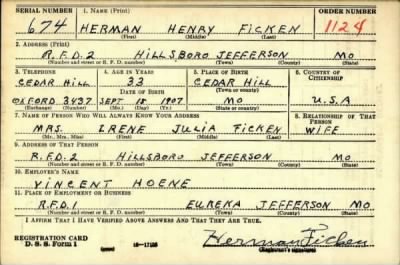 SERIAL NUMBER 1. NAME (Print) ORDER NUMBER
674 HERMAN HENRY FICKEN 1124
(First) (Middle) (Last)
2. ADDRESS (Print)
R.F.D.2 HILLSBORO JEFFERSON MO
(Number and street or R. F. D. number) (Town) (County) (State)
3. TELEPHONE 4. AGE IN YEARS 5. PLACE OF BIRTH 6. COUNTRY OF CITIZENSHIP
CEDAR HILL 33 CEDAR HILL
DATE OF BIRTH (Town or county)
OXFORD 3437 SEPT 18 1907 MO U.S.A
(Exchange) (Number) (Mo.) (Day) (Yr.) (State or country)
7. NAME OF PERSON WHO WILL ALWAYS KNOW YOUR ADDRESS 8. RELATIONSHIP OF THAT PERSON
MRS. IRENE JULIA FICKEN WIFE
(Mr., Mrs., Miss) (First) (Middle) (Last)
9. ADDRESS OF THAT PERSON
R.F.D.2 HILLSBORO JEFFERSON MO
(Number and street or R. F. D. number) (Town) (County) (State)
10. EMPLOYER'S NAME
VINCENT HOENE
11. PLACE OF EMPLOYMENT OR BUSINESS
R.F.D.1 EUREKA JEFFERSON MO
(Number and street or R. F. D. number) (Town) (County) (State)
I AFFIRM THAT I HAVE VERIFIED ABOVE ANSWERS AND THAT THEY ARE TRUE.
REGISTRATION CARD
D. S. S. Form 1 16—17105 Herman Ficken
(Registrant's signature)